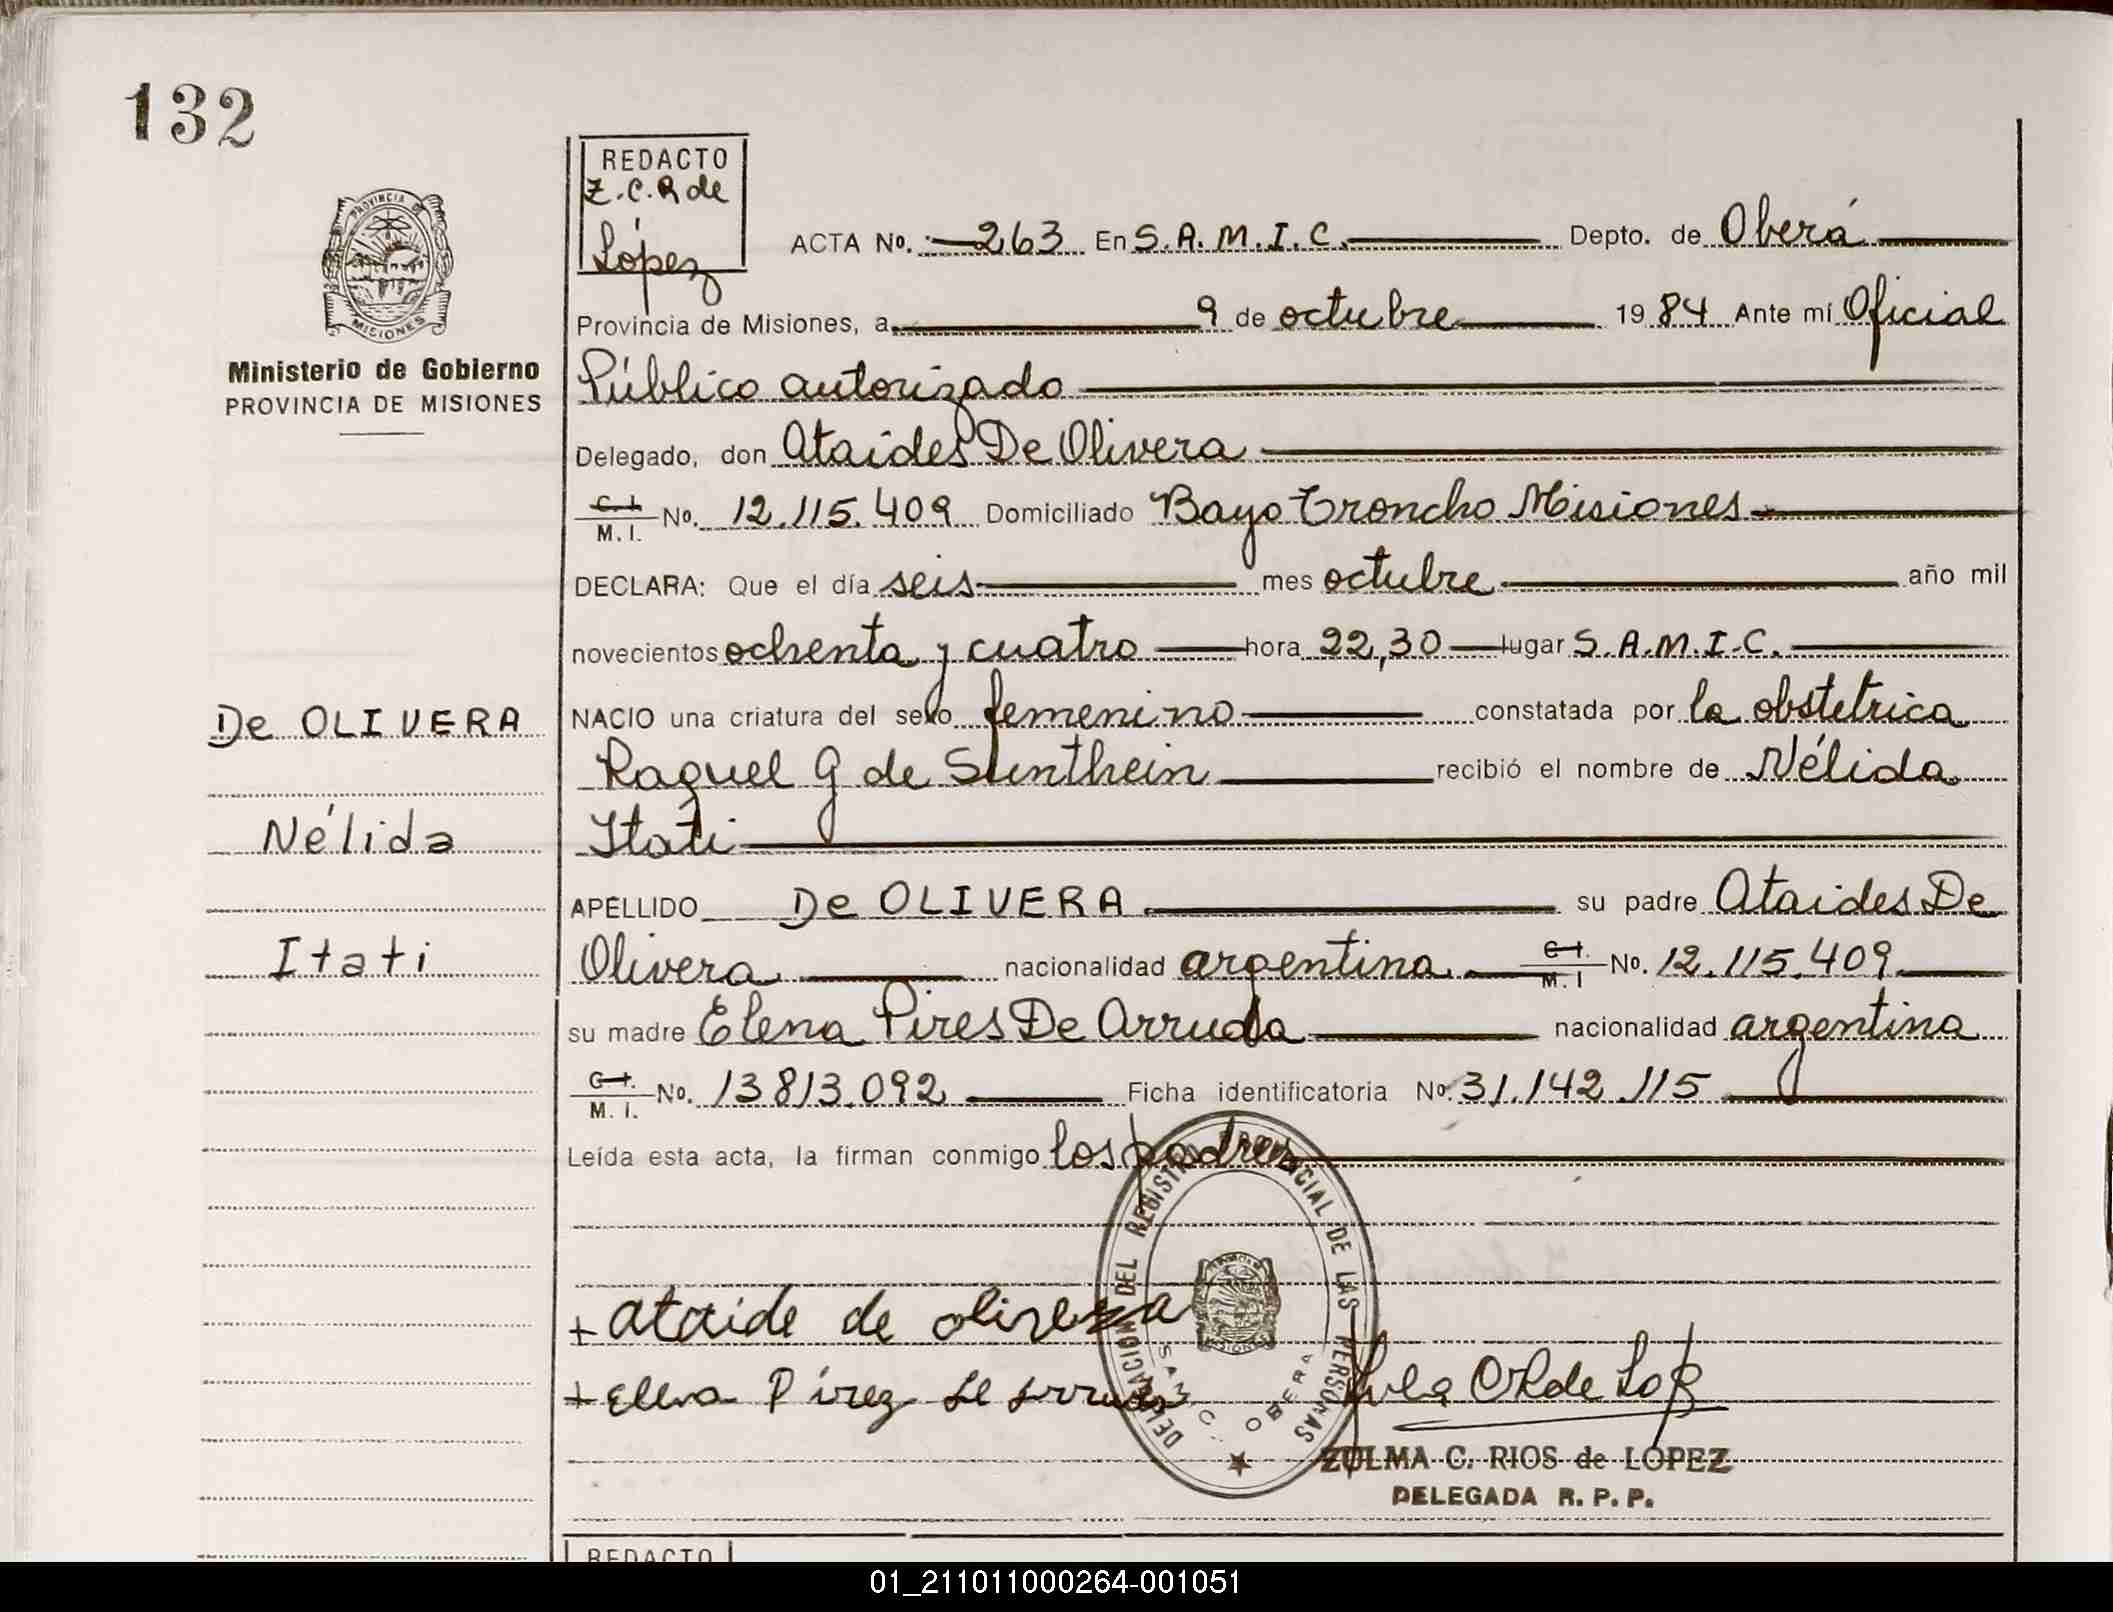 132
REDACTO
Z. C. R de
López
ACTA No. 263 En S. A. M. I. C. Depto. de Oberá
Provincia de Misiones, a 9 de octubre 19 84 Ante mí Oficial
Público autorizado
Delegado, don Ataides De Olivera
C. I. M. I. No. 12.115.409 Domiciliado Bayo Troncho Misiones
DECLARA: Que el día seis mes octubre año mil
novecientos ochenta y cuatro hora 22,30 lugar S. A. M. I. C.
NACIO una criatura del sexo femenino constatada por la obstetrica
Raquel G de Sunthein recibió el nombre de Nélida
Itati
APELLIDO De OLIVERA su padre Ataides De
Olivera nacionalidad argentina C. I. M. I No. 12.115.409
su madre Elena Pires De Arruda nacionalidad argentina
C. I. M. I. No. 13813.092 Ficha identificatoria No. 31.142.115
Leída esta acta, la firman conmigo los padres
PROVINCIA DE
MISIONES
Ministerio de Gobierno
PROVINCIA DE MISIONES
De OLIVERA
Nélida
Itati
+ ataide de olivera
+ Elena Pírez de arruda
DELEGACION DEL REGISTRO PROVINCIAL DE LAS PERSONAS
SAMIC. OBERA
ZULMA C. RIOS de LOPEZ
DELEGADA R. P. P.
REDACTO
01_211011000264-001051